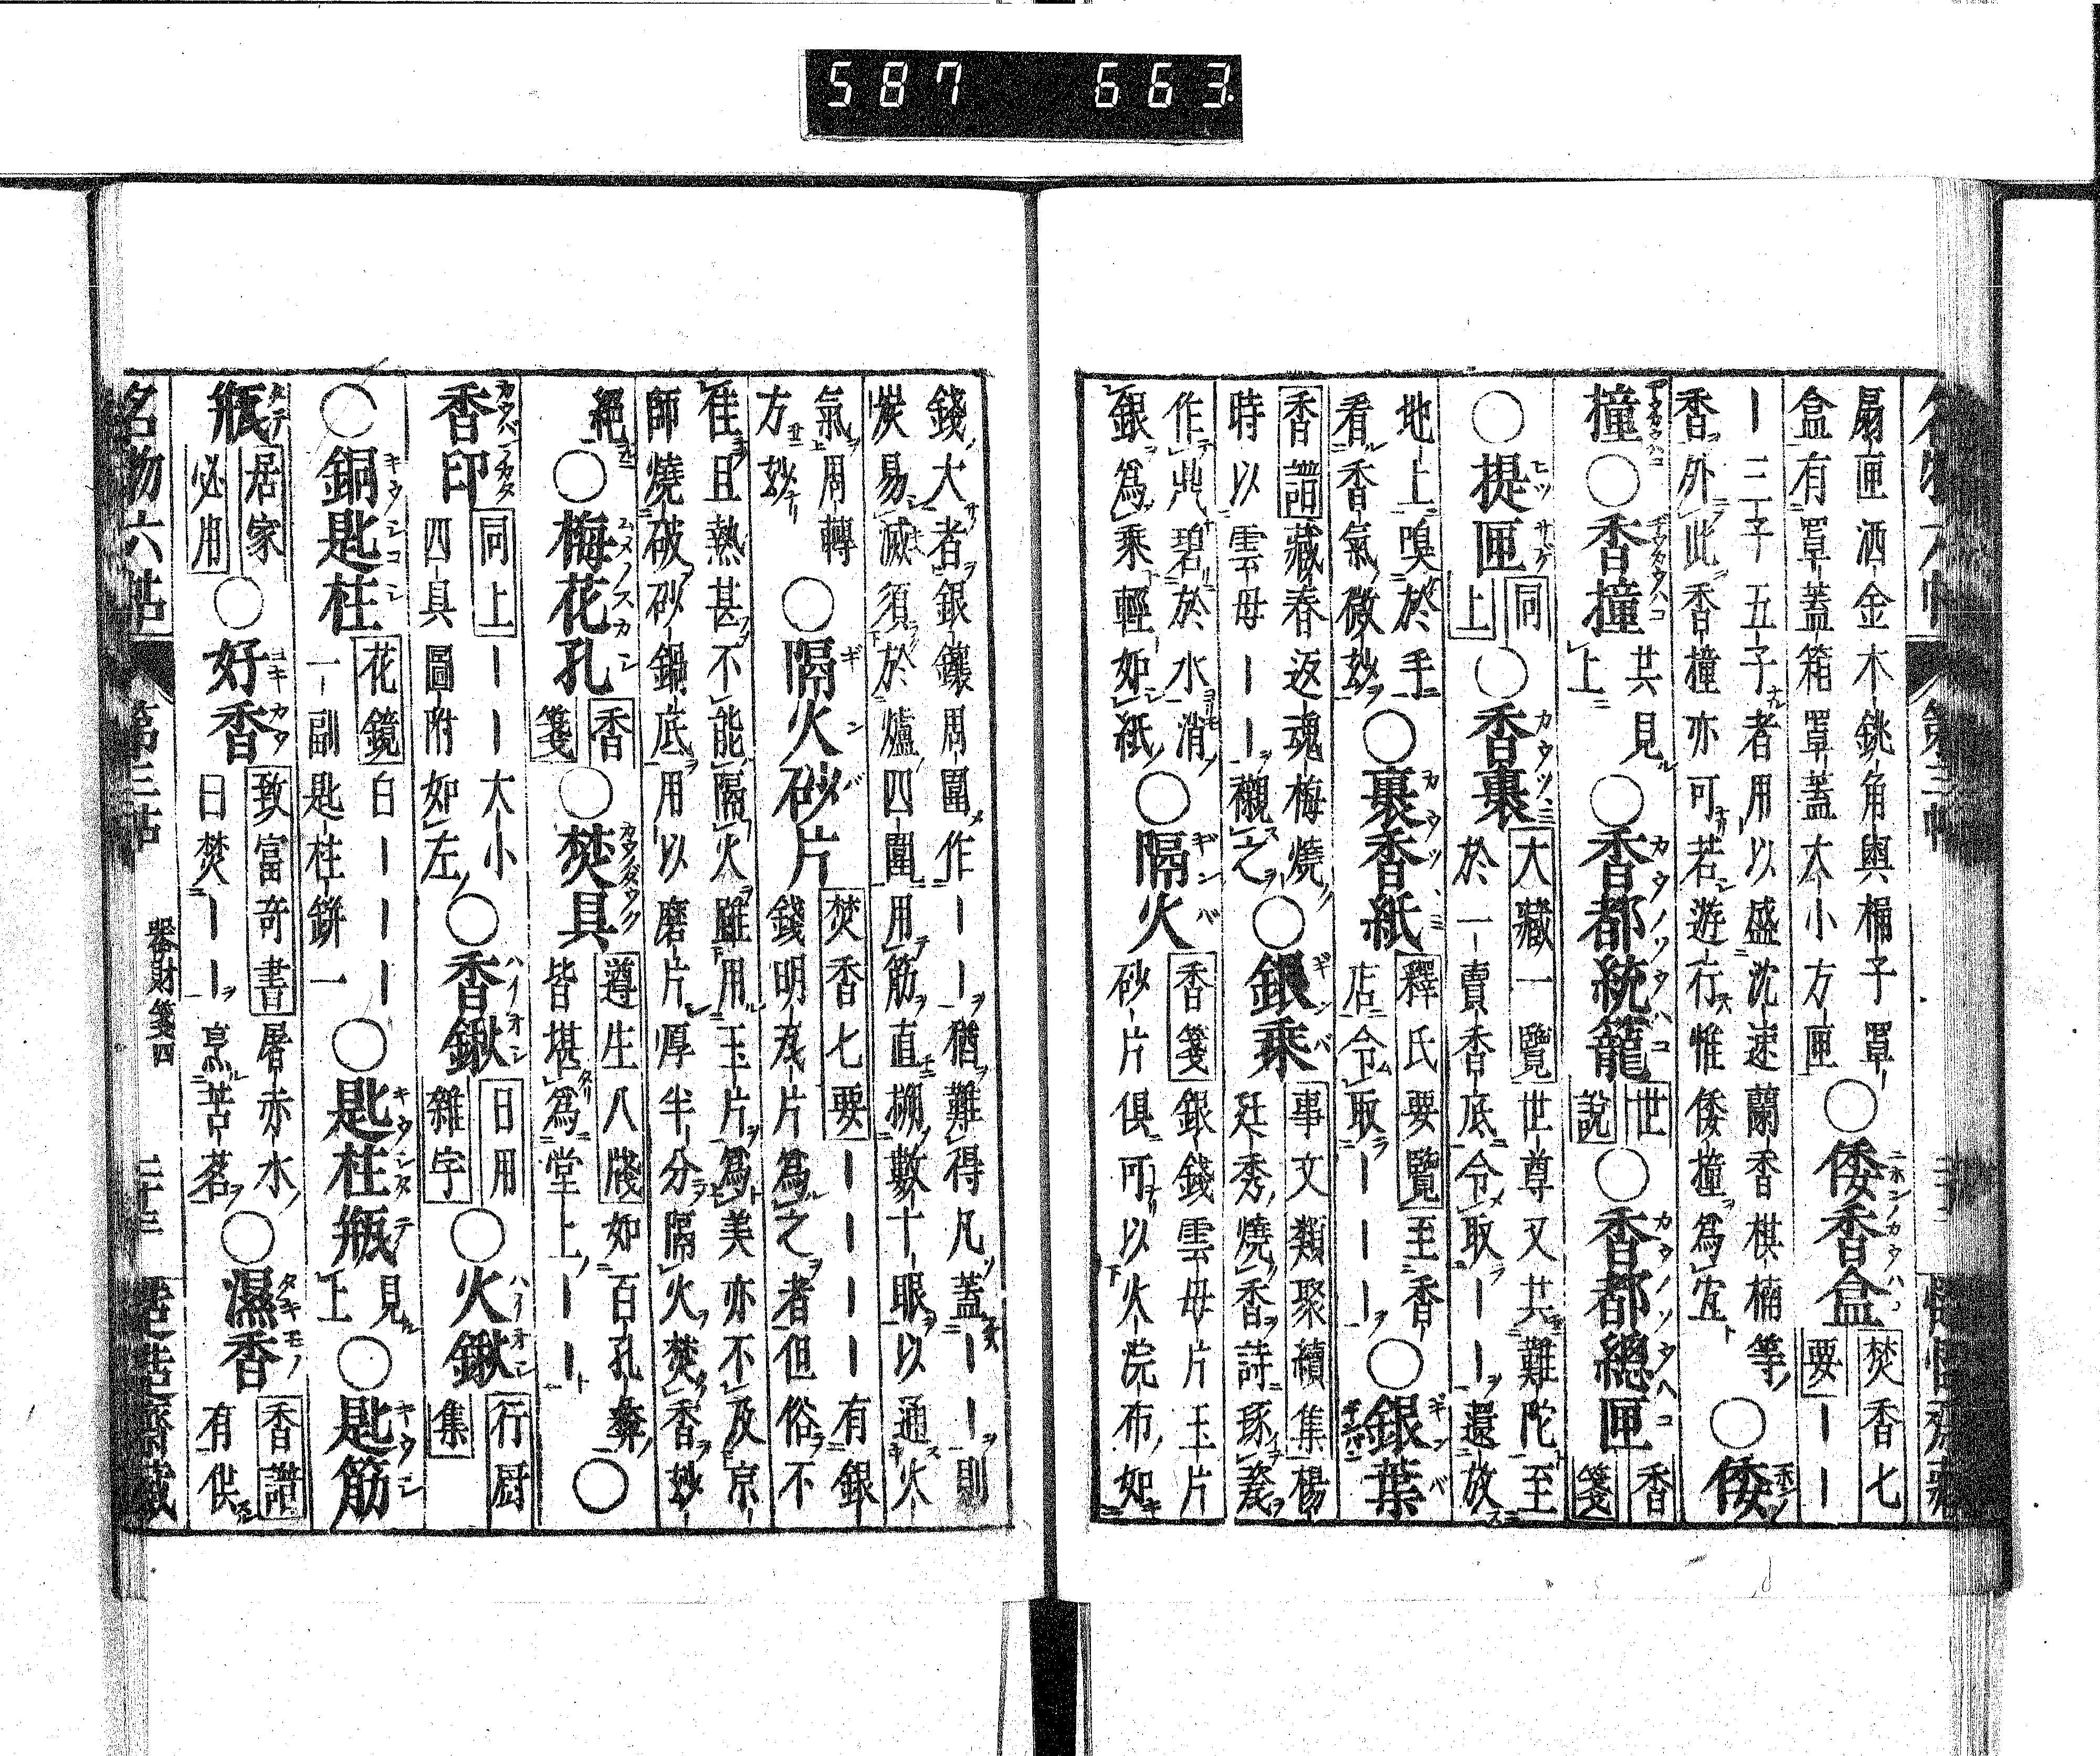 587 663
扇匣洒金木銚角與桶子罩
盒有罩蓋箱罩蓋大小方匣○倭香盒 焚香七要 ーー
ー三子五子者用以盛沈速蘭香棋楠等
香外此香橦亦可若遊行惟倭撞為宜○倭
撞○香撞 共見上○香都統籠 世說○香都總匣 香箋
○提匣 同上○香裹 大藏一覽 世尊又共難陀至
於一賣香底令取ーー還放
地上嗅於手○裹香紙 釋氏要覽 至香
看香氣微妙 店令取ーーー○銀葉
香譜 藏春返魂梅燒
時以雲母ーー襯之○銀乗 事文類聚續集 楊
廷秀燒香詩琢瓷
作鼎碧於水消
銀為乘輕如紙○隔火 香箋 銀錢雲母片玉片
砂片俱可以火浣布如
錢大者銀鑲周圍作ーー猶難得凡蓋ーー則
炭易滅須於爐四圍用筋直搠數十眼以通火
氣周轉
方妙○隔火砂片 焚香七要 ーーーー有銀
錢明瓦片為之者但俗不
佳且熱甚不能隔火雖用玉片為美亦不及京
師燒破砂鍋底用以磨片厚半分隔火焚香妙
絕○梅花孔 香箋○焚具 遵生八牋 如百孔彝
皆堪為堂上ーー○
香印 同上 ーー大小
四具圖附如左○香鍬 日用雜字○火鍬 行厨集
○銅匙柱 花鏡 白ーーー
一副匙柱鉼一○匙柱瓶 見上○匙筋
瓶 居家必用○好香 致富奇書 屠赤水
日焚ーー烹苦茗○濕香 香譜
有供
名物六帖 第三帖 器財箋四 二十三